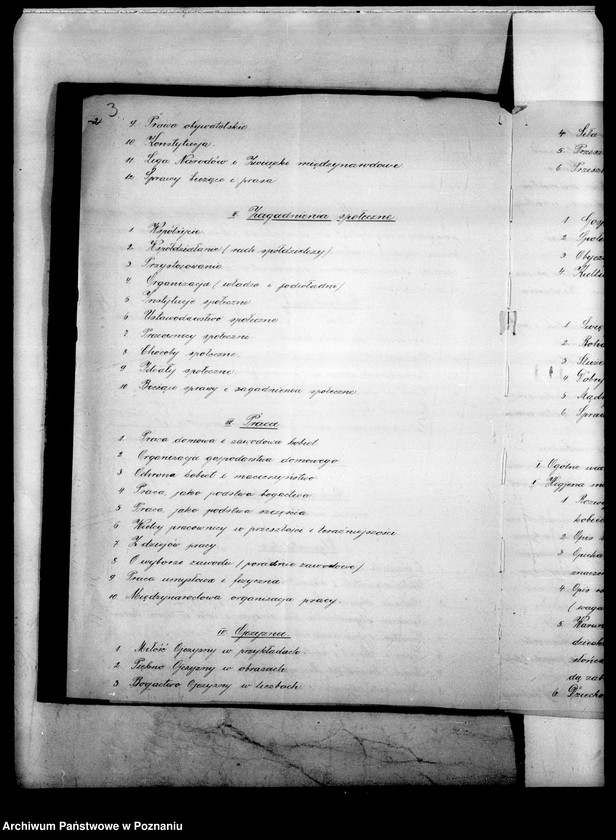 3.
9. Prawa obywatelskie
10 Konstytucja.
11 Liga Narodów i Związki międzynarodowe
12 Sprawy bieżące i prasa
II. Zagadnienia społeczne
1 Współżycie
2. Współdziałanie (ruch spółdzielczy)
3 Przystosowanie
4 Organizacja (władza i podwładni)
5 Instytucje społeczne
6 Ustawodawstwo społeczne
7 Pracownicy społeczne
8 Choroby społeczne.
9 Ideały społeczne
10 Bieżące sprawy i zagadnienia społeczne
III. Praca
1 Praca domowa i zawodowa kobiet
2 Organizacja gospodarstwa domowego
3 Ochrona kobiet i macierzyństwo
4 Praca, jako podstwa bogactwa
5 Praca, jako podstwa szczęścia
6 Wielcy pracownicy w przeszłości i teraźniejszości
7 Z dziejów pracy
8 O wyborze zawodu (poradnie zawodowe)
9 Praca umysłowa i fizyczna
10 Międzynarodowa organizacja pracy.
IV. Ojczyzna
1. Miłość Ojczyzny w przykładach.
2 Piękno Ojczyzny w obrazach
3 Bogactwo Ojczyzny w liczbach
4.
5.
6
1
2
3
4
1
2
3
4
5
6
I. Ogólne
1. Higjena
1
2 Opis
3
4. Opis
5
6. Dziecko
Archiwum Państwowe w Poznaniu